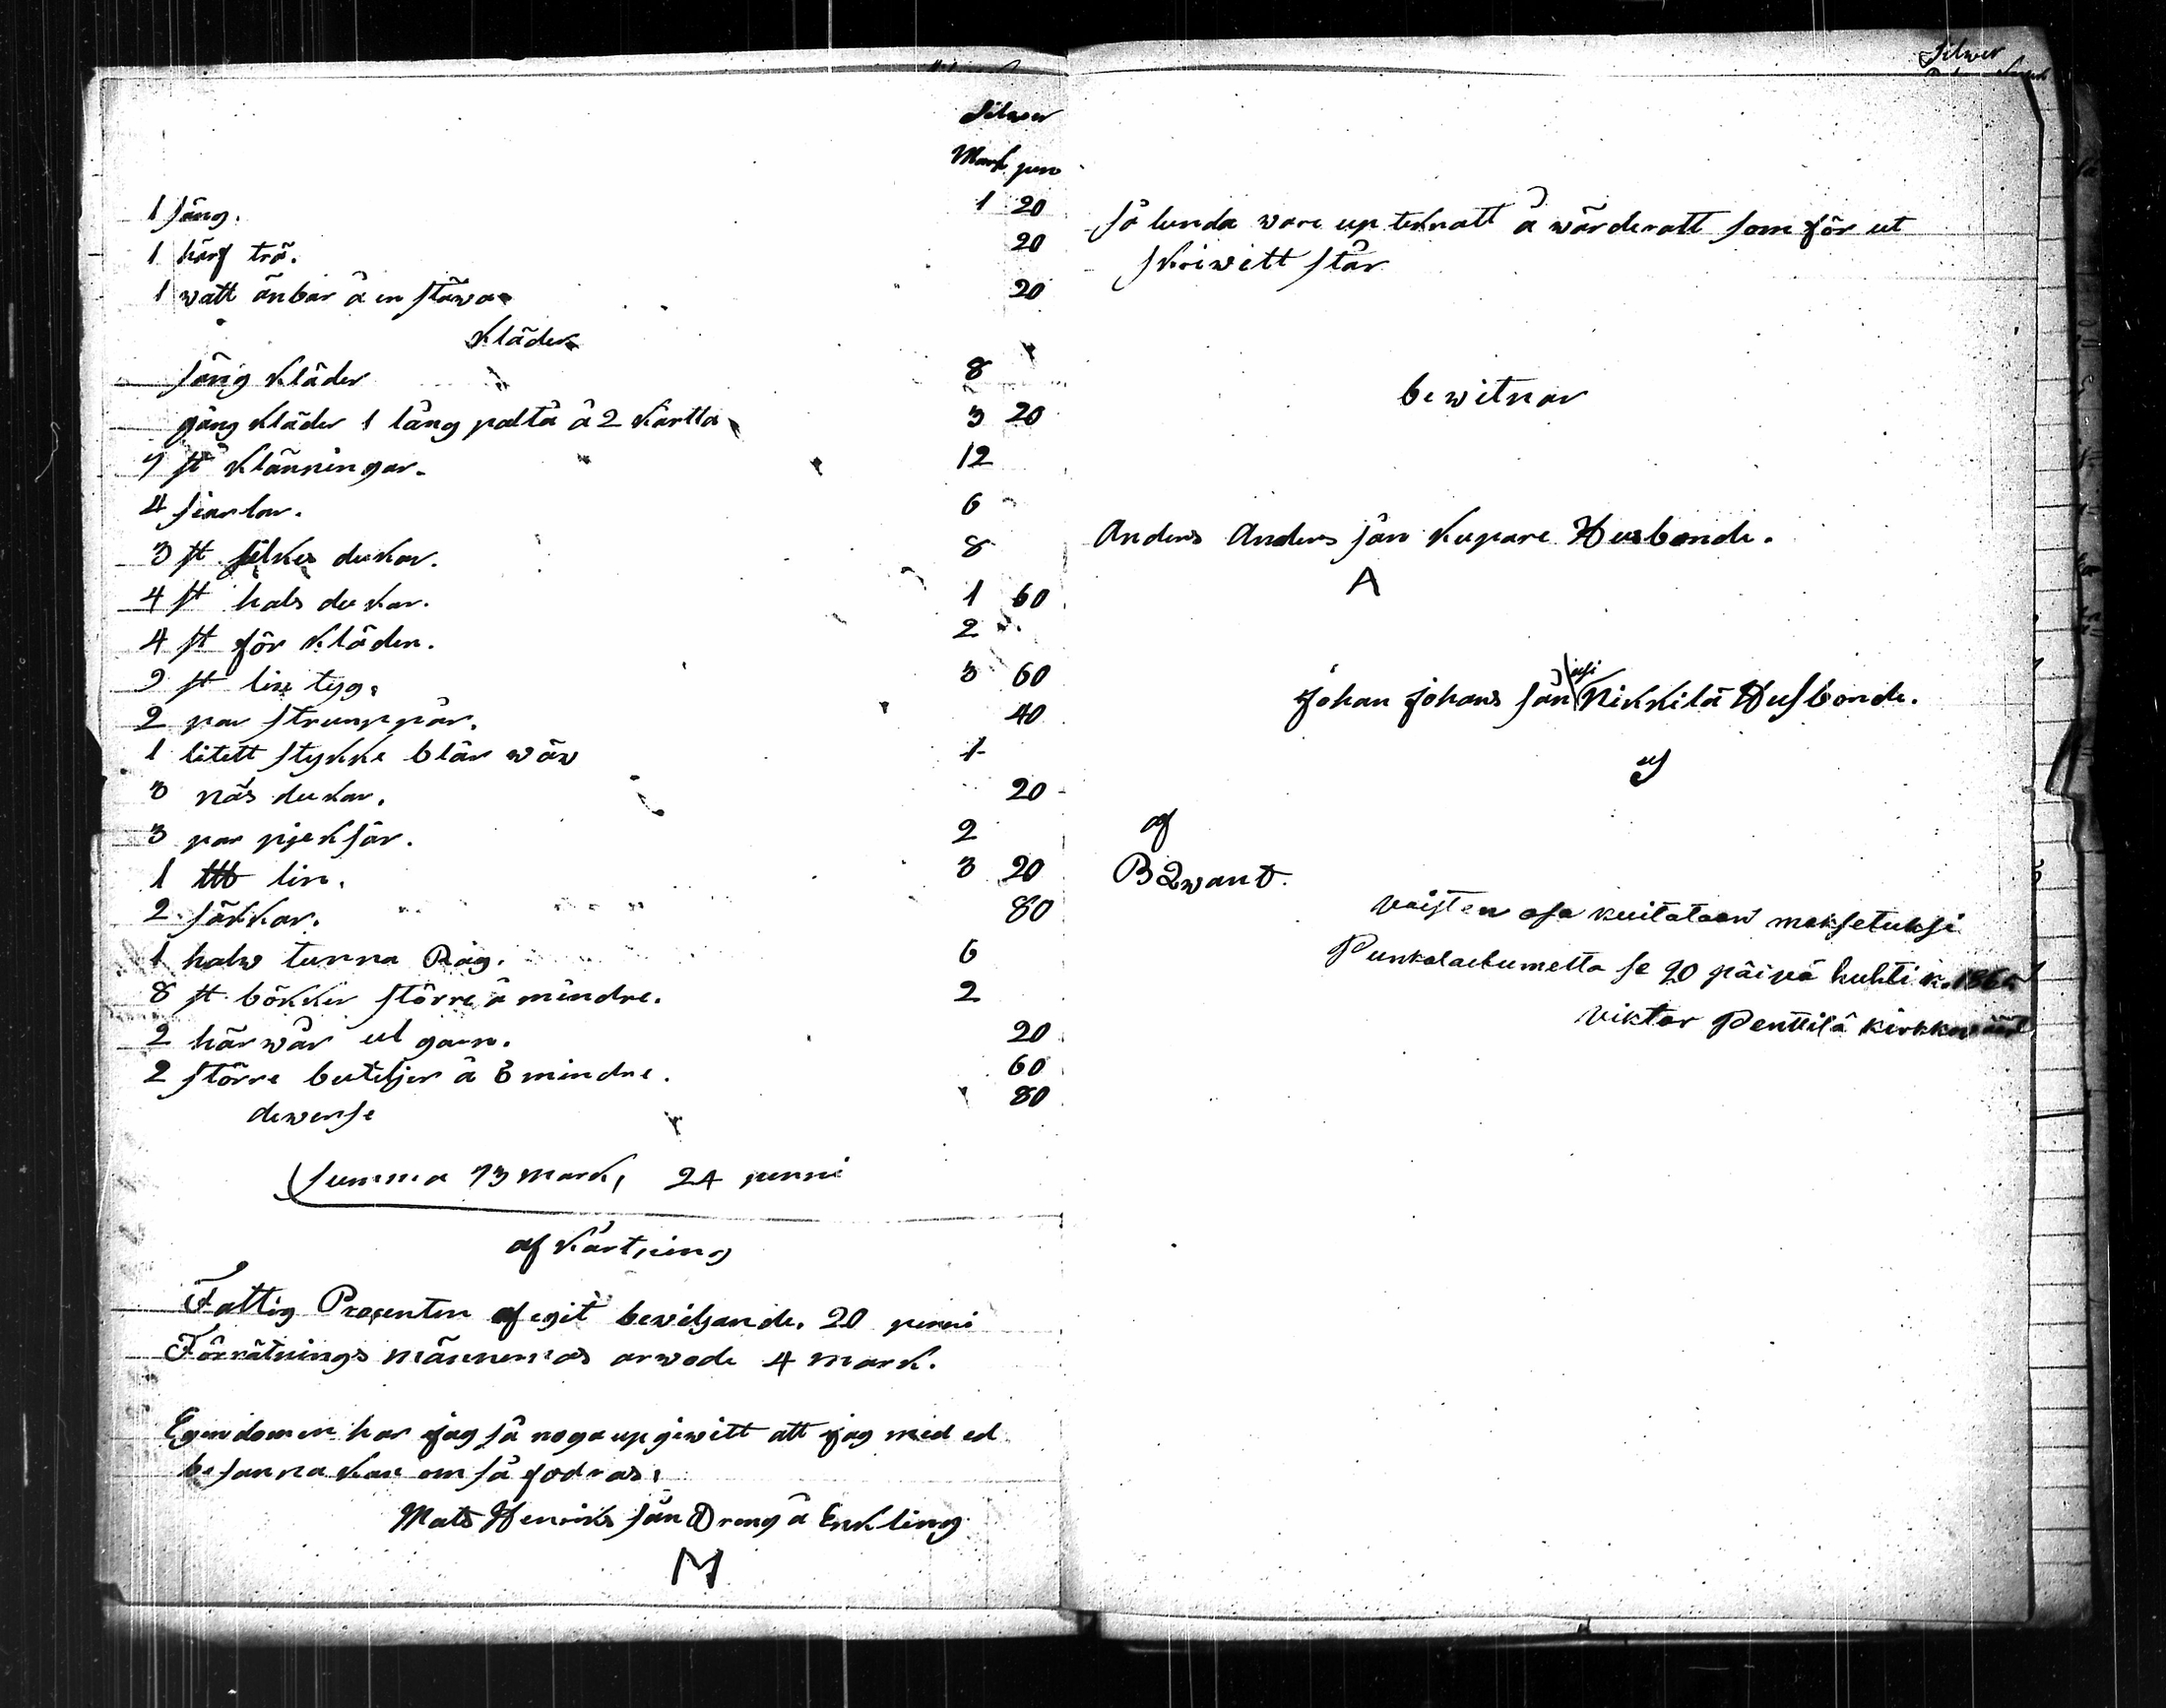 Silwer
Mark pen
1 säng. 1 20
1 härf trä. 20
1 watt änbar å en stäwa 20
Kläder
säng kläder 8
gång kläder 1 lång palta å 2 kårtta 3 20
7 st klänningar. 12
4 siortor. 6
3 st silkes dukar. 8
4 st hals dukar. 1 60
4 st för kläden. 2
9 st line tyg. 3 60
2 par strumppår. 40
1 litett stykke blår wäw 1
3 näs dukar. 20
3 par pjeksår. 2
1 ttb lin. 3 20
2 säkkar. 80
1 halw tunna Råg. 6
8 st bökker större å mindre. 2
2 härwår ul garn. 20
2 större buteljer å 3 mindre. 60
dewerse 80
summa 73 mark, 24 penni
af kårtning
Fattig Procenten af egit beviljande. 20 penni
Förrätnings männernas arwode 4 mark.
Egendomen har jag så noga upgiwitt att jag med ed
besanna kan om så fodras.
Mats Henriks sån Dreng å Enkling
M
Silwer
så lunda ware up teknatt å wärderatt som för ut
skriwitt står
bewitnar
Anders Anders sån Kupare Husbonde.
A
Johan Johans sån Nikkilä Husbonde.
af
B Qwant.
Vaisten osa kuitataan maksetuksi
Punkalaitumella se 20 päivä huhti k.
Viktor Penttilä kirkkowäärt